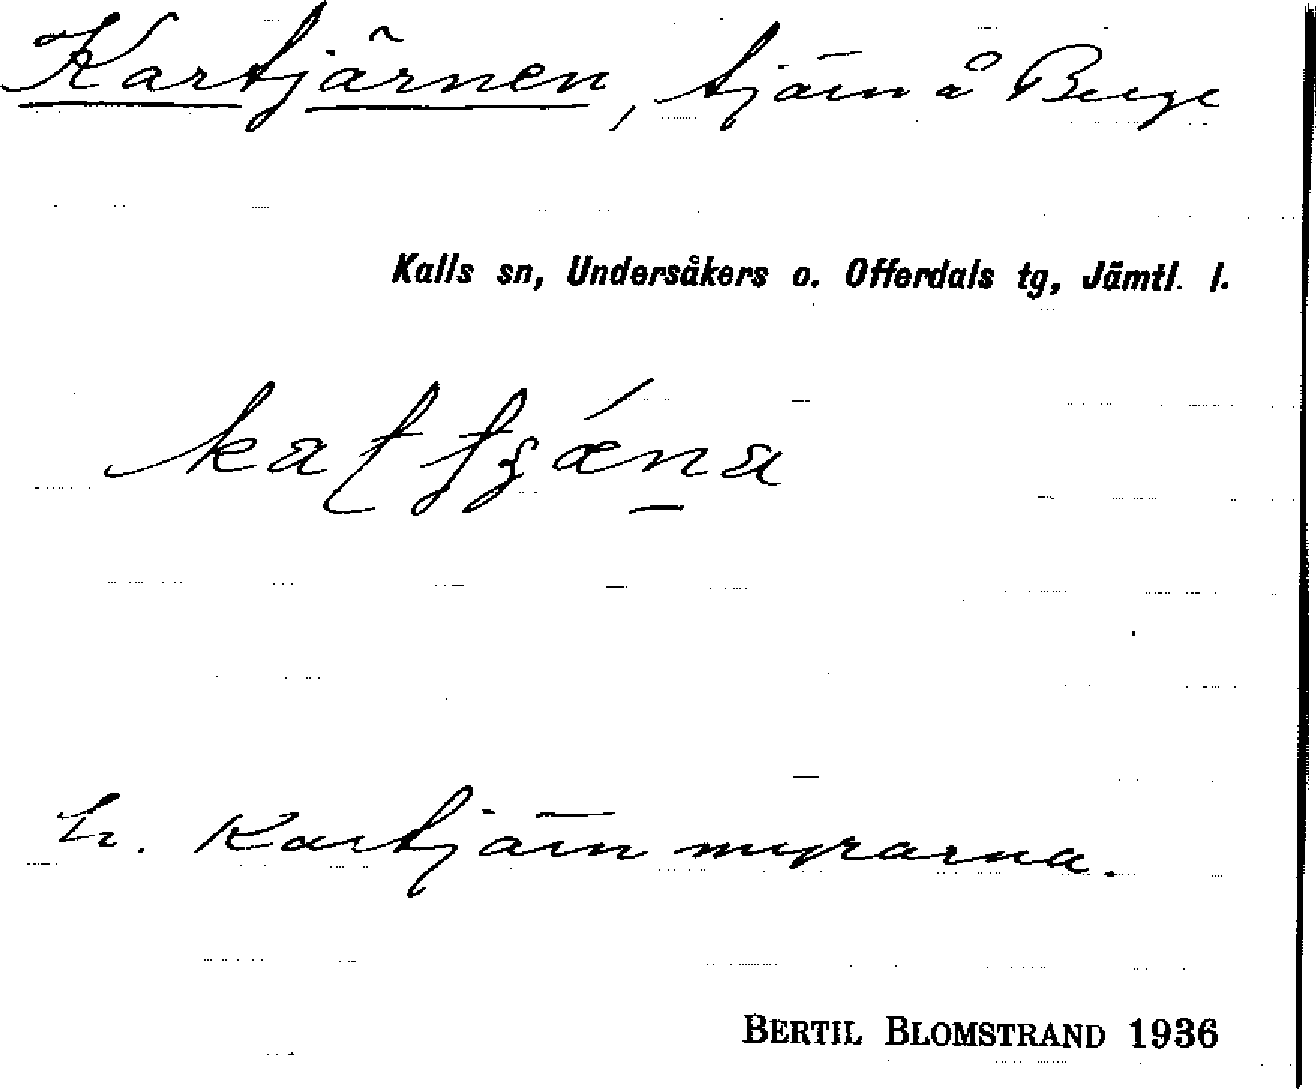 Kartjärnen, tjärn å Berge
Kalls sn, Undersåkers o. Offerdals tg, Jämtl. l.
Kartjärnmyrarna.
BERTIL BLOMSTRAND 1936